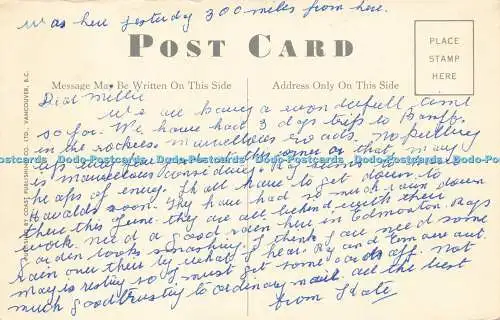 was here yesterday 300 miles from here.
POST CARD
PLACE
STAMP
HERE
Message May Be Written On This Side
Address Only On This Side
Dear Millie
we are having a wonderfull time
so far. We have had 3 days trip to Banff
in the rockies. marvellous roads, no pulling
up the corner or that, may
is marvellous considering.
heaps of energy. I shall have to get down to
Howards soon. They have had so much rain down
there this June. they are all behind with their
work. need a good rain here in Edmonton. Rays
garden looks smashing. I think you all need some
rain over there by what I hear. Ray and Tom are out.
may is resting so I must get some cards off. Not
much good trusting to ordinary mail. all the best
from Kate
PUBLISHED BY COAST PUBLISHING CO. LTD., VANCOUVER, B.C.
Dodo-Postcards Dodo-Postcards Dodo-Postcards Dodo-Postcards